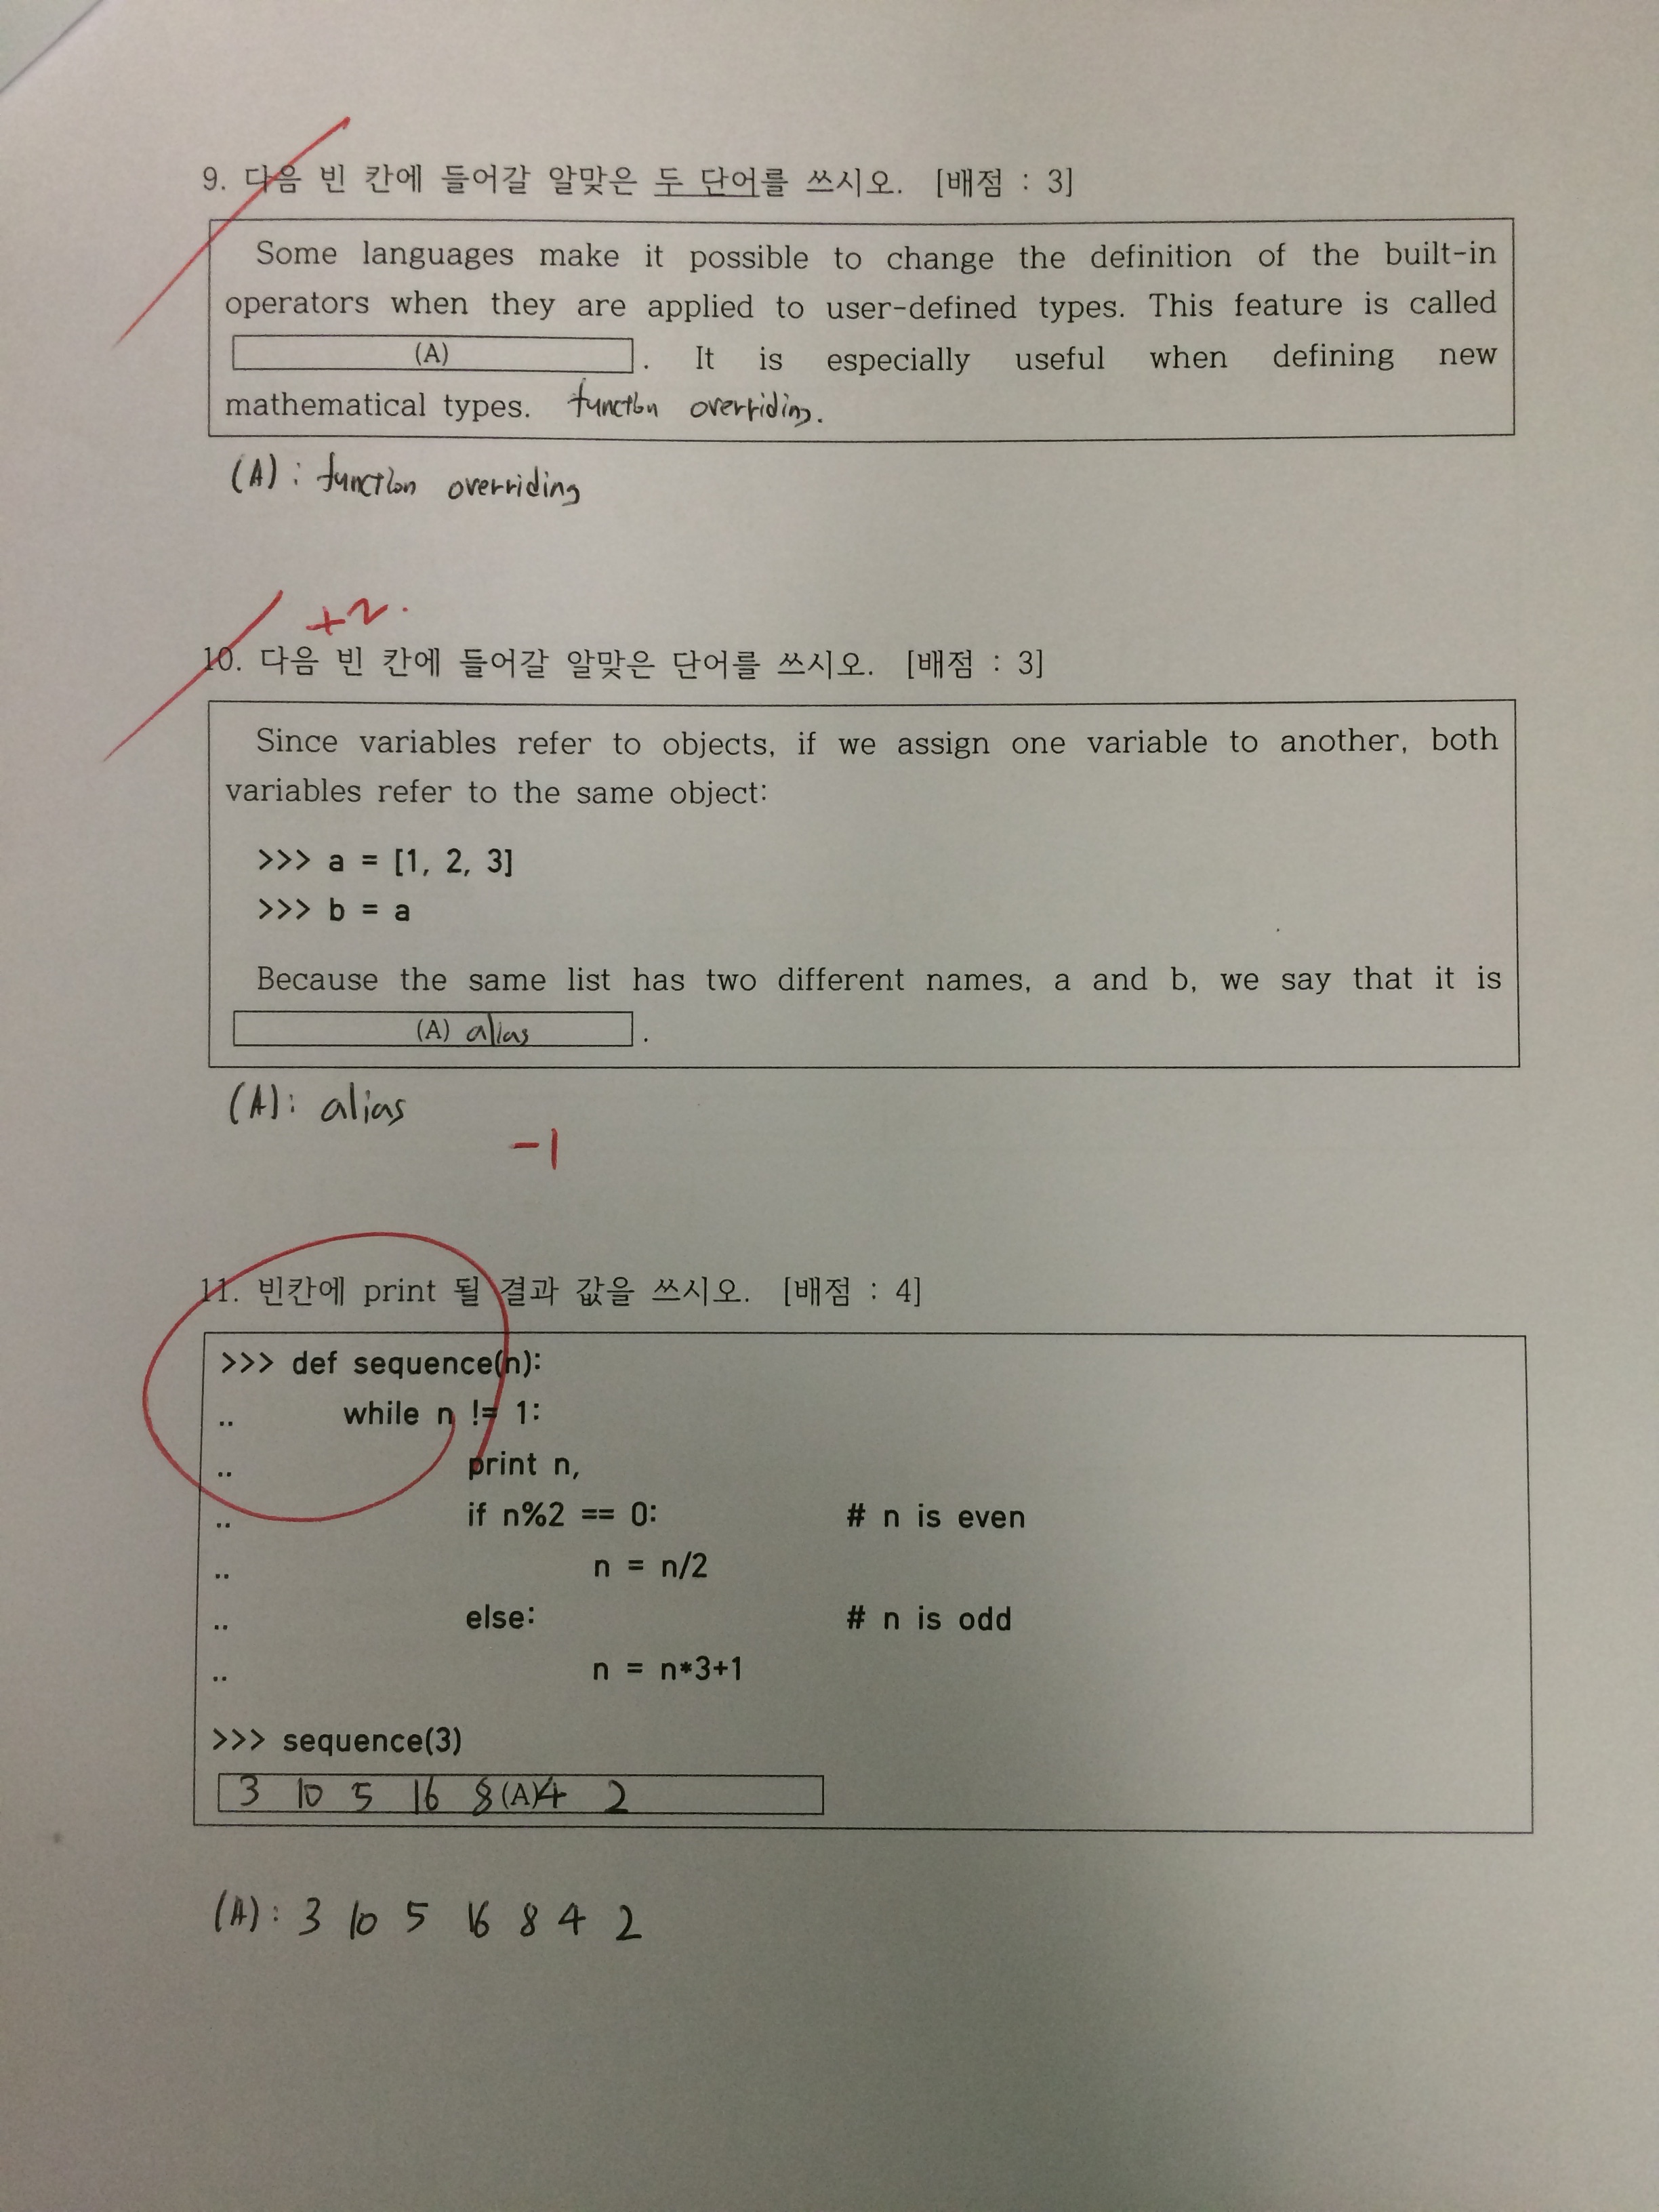 9. 다음 빈 칸에 들어갈 알맞은 두 단어를 쓰시오. [배점 : 3]
Some languages make it possible to change the definition of the built-in
operators when they are applied to user-defined types. This feature is called
(A) . It is especially useful when defining new
mathematical types. function overriding.
(A): function overriding
+2.
10. 다음 빈 칸에 들어갈 알맞은 단어를 쓰시오. [배점 : 3]
Since variables refer to objects, if we assign one variable to another, both
variables refer to the same object:
>>> a = [1, 2, 3]
>>> b = a
Because the same list has two different names, a and b, we say that it is
(A) alias .
(A): alias
-1
11. 빈칸에 print 될 결과 값을 쓰시오. [배점 : 4]
>>> def sequence(n):
.. while n != 1:
.. print n,
.. if n%2 == 0: # n is even
.. n = n/2
.. else: # n is odd
.. n = n*3+1
>>> sequence(3)
3 10 5 16 8 (A) 4 2
(A): 3 10 5 16 8 4 2